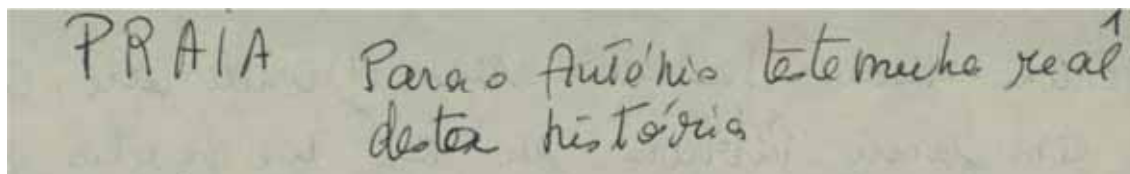 PRAIA Para o António testemunha real 1
desta história